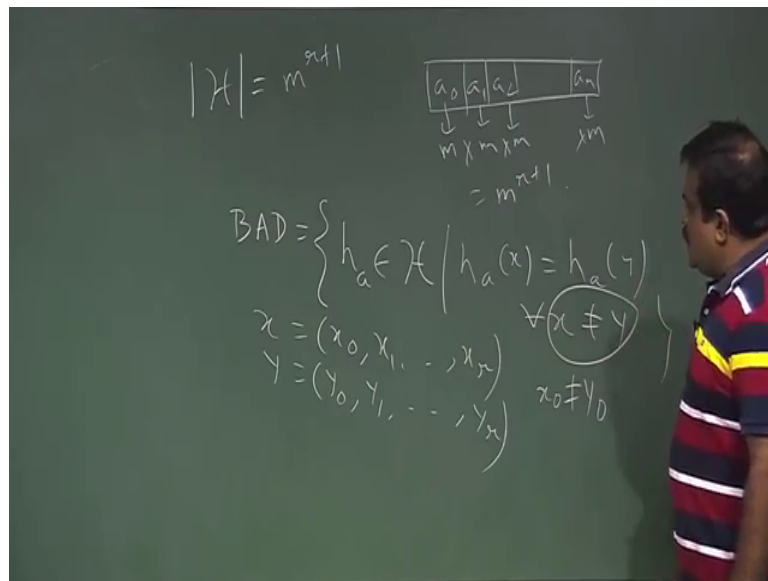 |H| = m^{r+1}
a_0 a_1 a_2 a_r
m × m × m × m
= m^{r+1}.
BAD = { h_a ∈ H | h_a(x) = h_a(y)
∀ x ≠ y }
x = (x_0, x_1, . - , x_r)
y = (y_0, y_1, . - . , y_r)
x_0 ≠ y_0